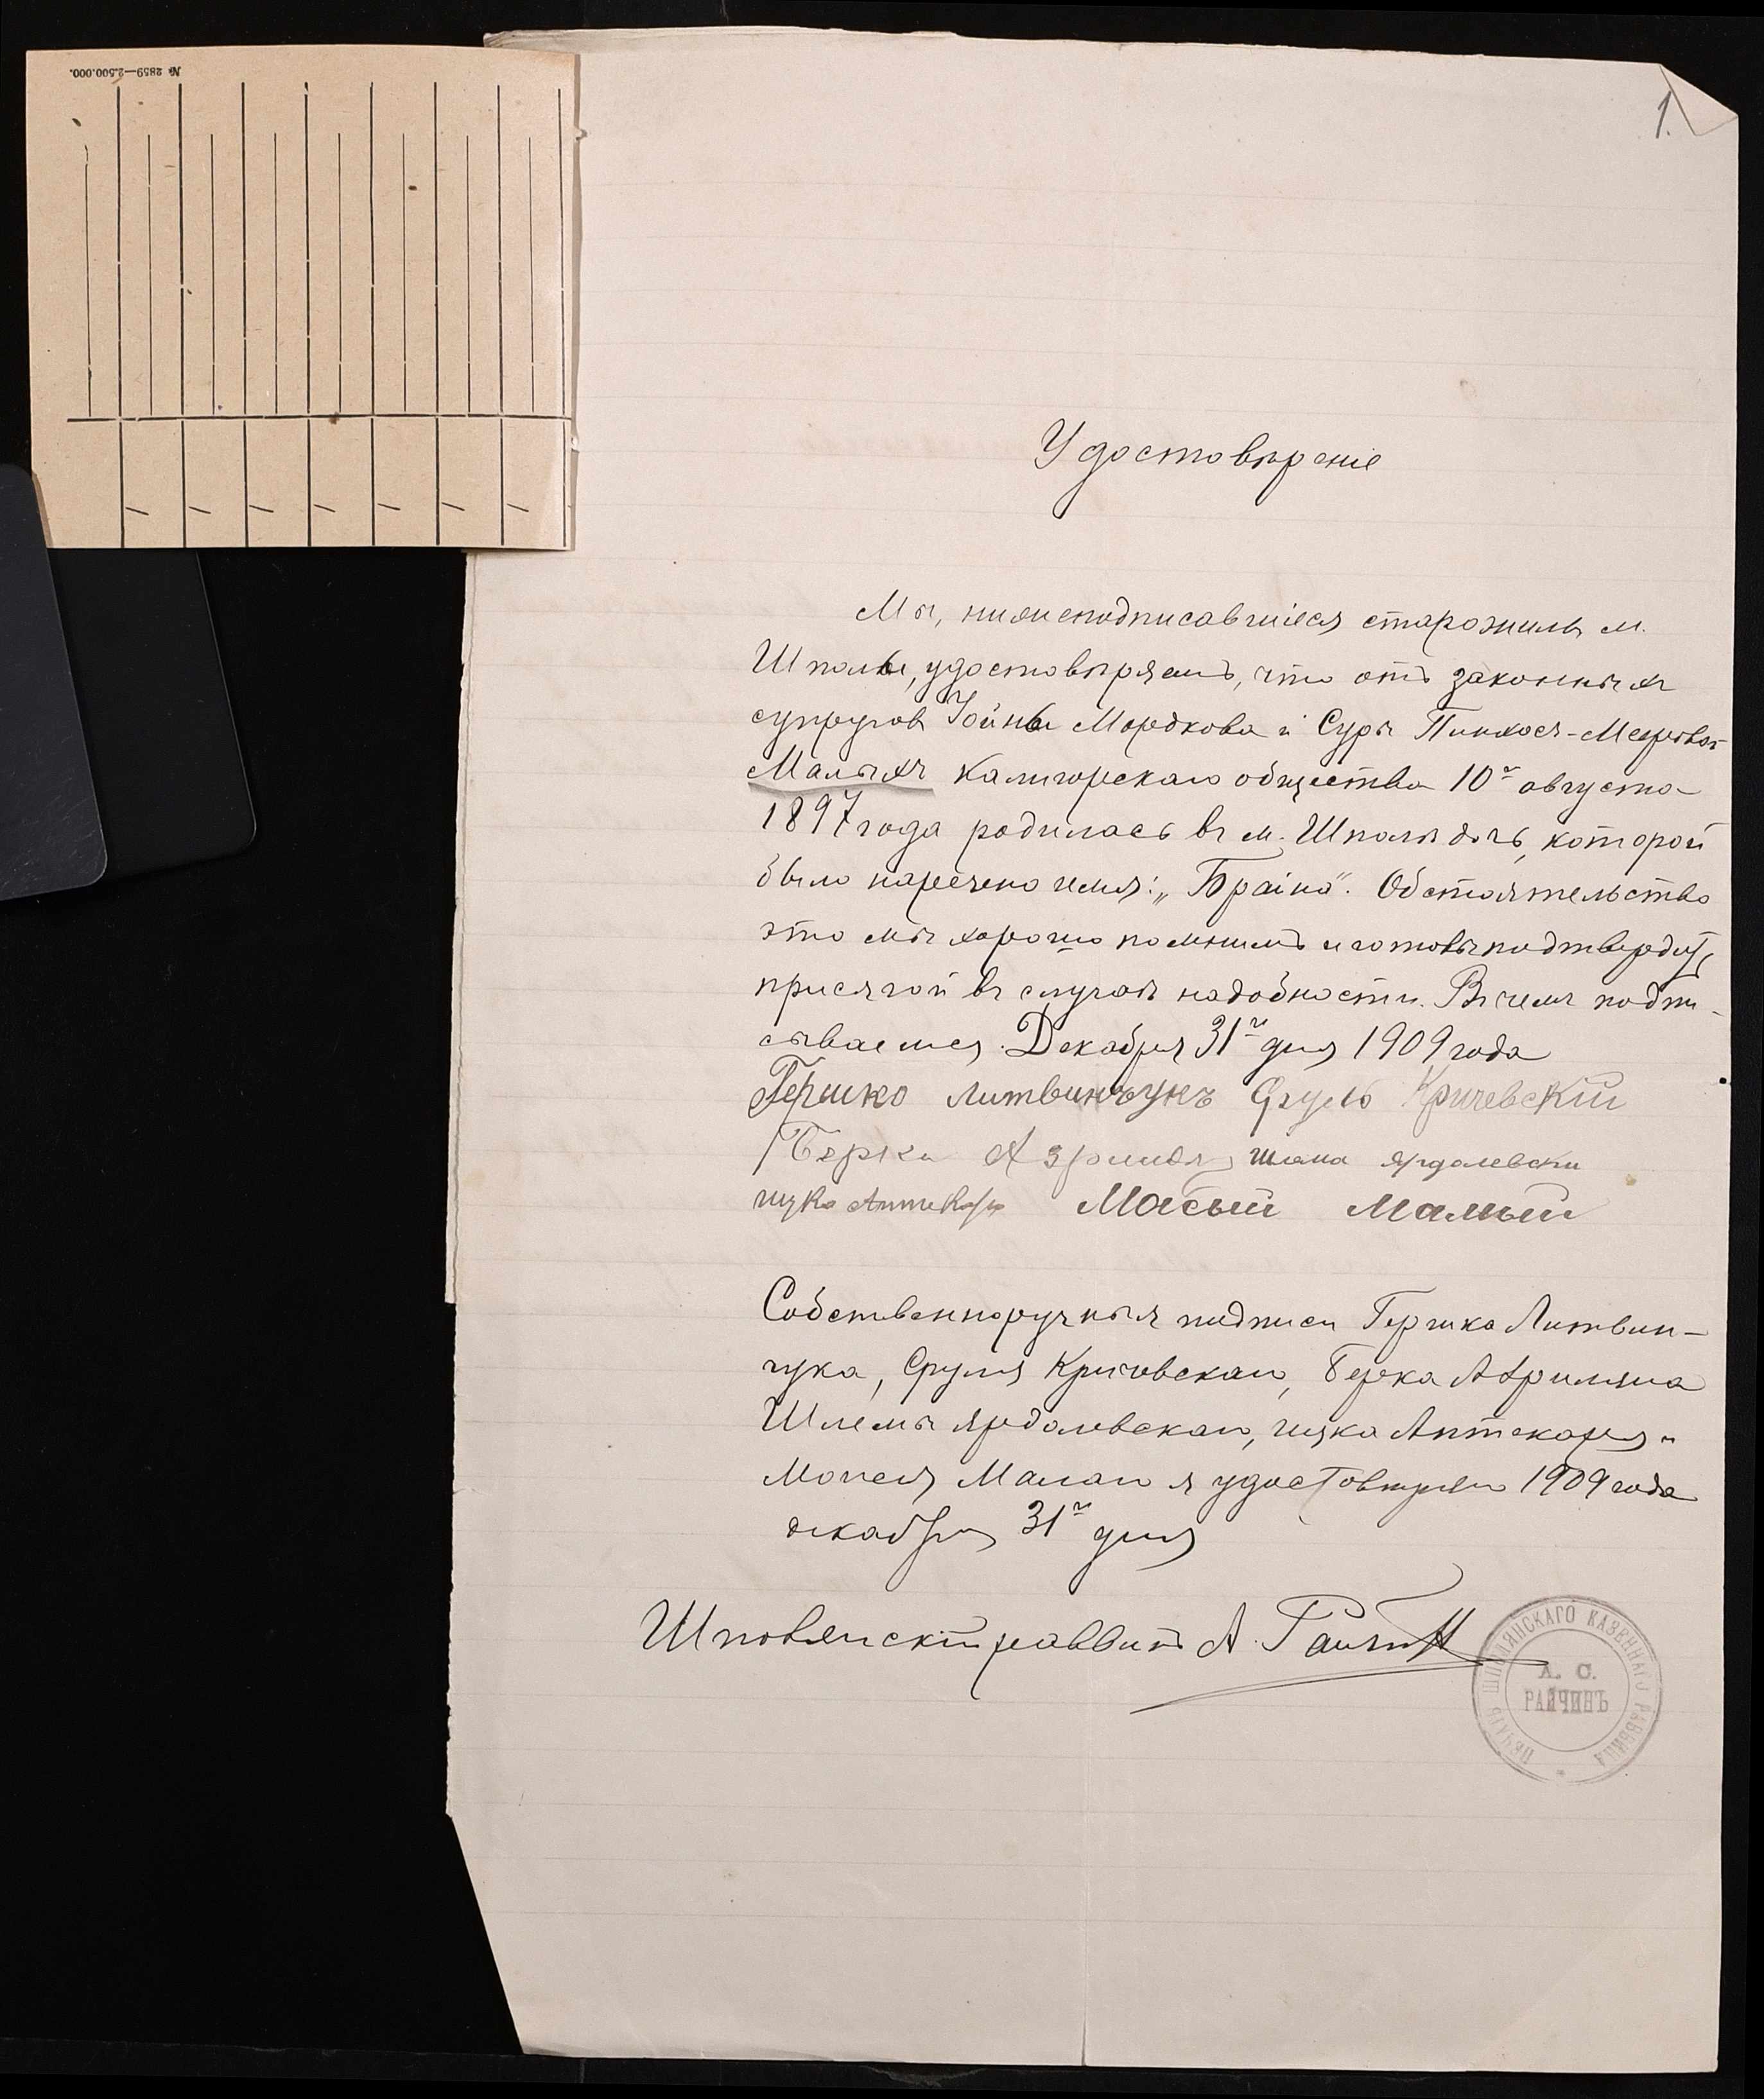 № 2859—2.500.000.
1.
Удостовѣреніе
Мы, нижеподписавшіеся старожилы м.
Шполы, удостовѣряемъ, что отъ законныхъ
супруговъ Іойны Мордкова и Суры Пинхось-Мееровой
Малыхъ Калигорскаго общества 10го августа
1897 года родилась въ м. Шполѣ дочь, которой
было наречено имя: „Браина". Обстоятельство
это мы хорошо помнимъ и готовы подтвердить
присягой въ случаѣ надобности. Въ чемъ подпи-
сываемся. Декабря 31го дня 1909 года
Гершко Литвинчукъ Сруль Кричевскій
Берко шлема ярдалевски
ицко Аптекарь Мосей Малый
Собственноручныя подписи Гершка Литвин-
чука, Сруля Кричевскаго, Берка
Шлемы Ярдалевскаго, Ицка Аптекаря и
Мосея Малаго я удостовѣряю 1909 года
декабря 31го дня
Шполянскій раввинъ А. Райчинъ
ПЕЧАТЬ ШПОЛЯНСКАГО КАЗЕННАГО РАВВИНА
А. С.
РАЙЧИНЪ